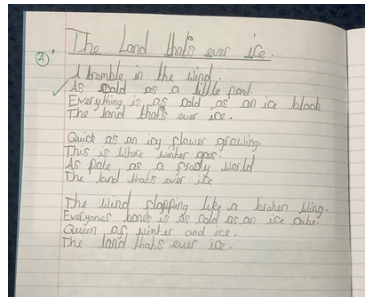 The Land that's ever ice.
A bramble in the wind.
As cold as a little pond
Everything is as cold as an ice block
The land that's ever ice.
Quick as an icy flower growing.
This is where winter goes.
As pale as a frosty world
The land thats ever ice
The wind flapping like a broken wing.
Everyones bones is as cold as an ice cube.
Queen of winter and ice.
The land thats ever ice.